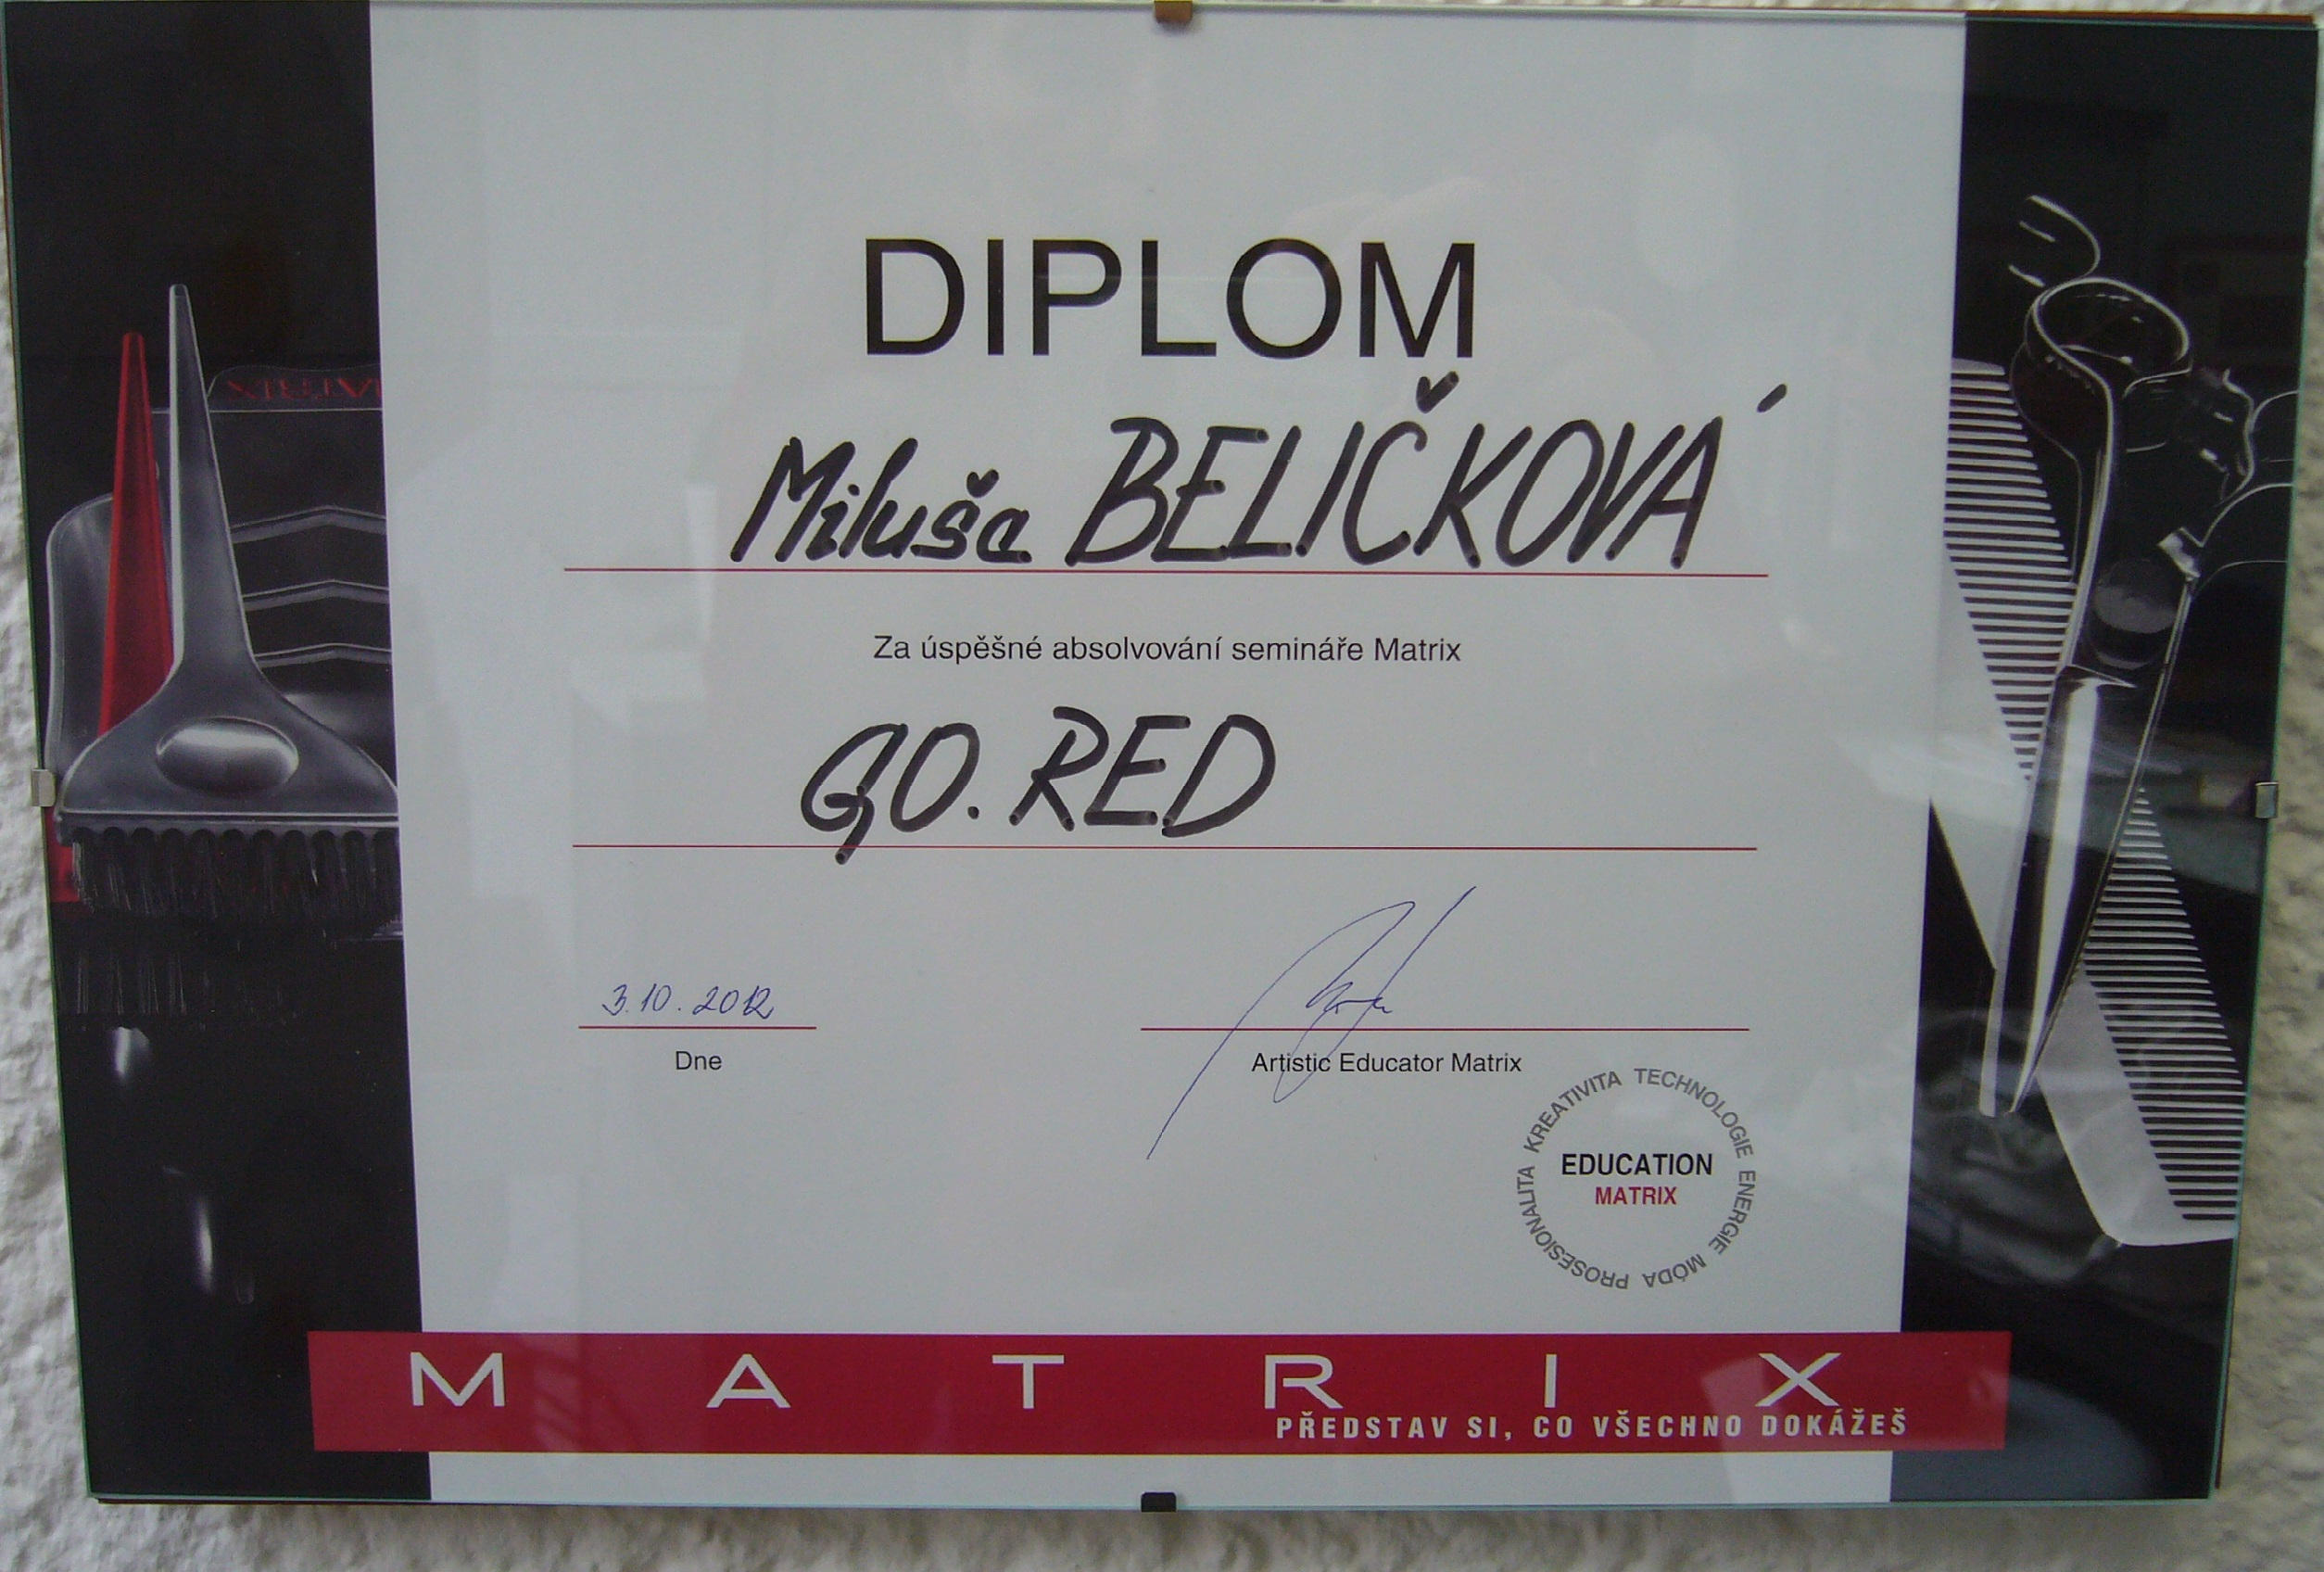 DIPLOM
Miluše BELIČKOVÁ
Za úspěšné absolvování semináře Matrix
GO. RED
3.10.2012
Dne
Artistic Educator Matrix
KREATIVITA TECHNOLOGIE ENERGIE MÓDA PROSESIONALITA
EDUCATION
MATRIX
MATRIX
PŘEDSTAV SI, CO VŠECHNO DOKÁŽEŠ